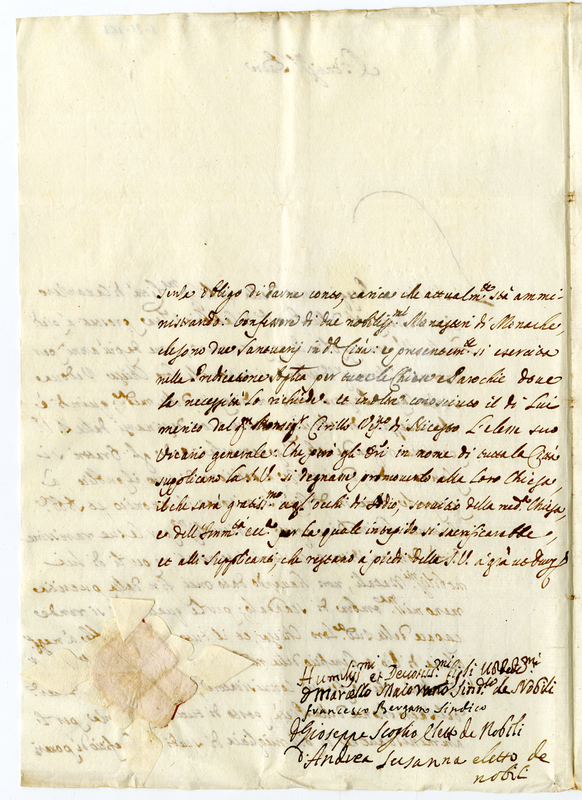 senza obligo di darne conto, carica che actualm.te stà ammi-
nistrando: Confessore di due nobiliss.mi Monasteri di Monache,
che sono due Santuarij in d.a Città: e presentem.te si esercita
nella Predicatione Aplia per tutte le Chiese e Parochie dove
la necessità lo richiede et inoltre conosciuto il di Lui
merito dal Monsig.r Cirillo Vesc.o di Nicastro L'elesse suo
Vicario generale. Che però gli Ori in nome di tutta la Città
supplicano la S.V. si degnare promoverlo alla Loro Chiesa,
il che sarà gratiss.mo agl'occhi di Iddio, servitio della med.a Chiesa,
e dell'Imm.tà Ecc.a per la quale intrepido si sacrificarebbe,
et alli Supplicanti, che restano à piedi della S.V. à gra ut Deus
Humiliss.mi et Devotiss.mi figli
D. Marcello Sind.co de Nobili
francesco Bergamo Sindico
D. Gioseppe Scoglio Eletto de Nobili
D. Andrea Susanna eletto de
nobili